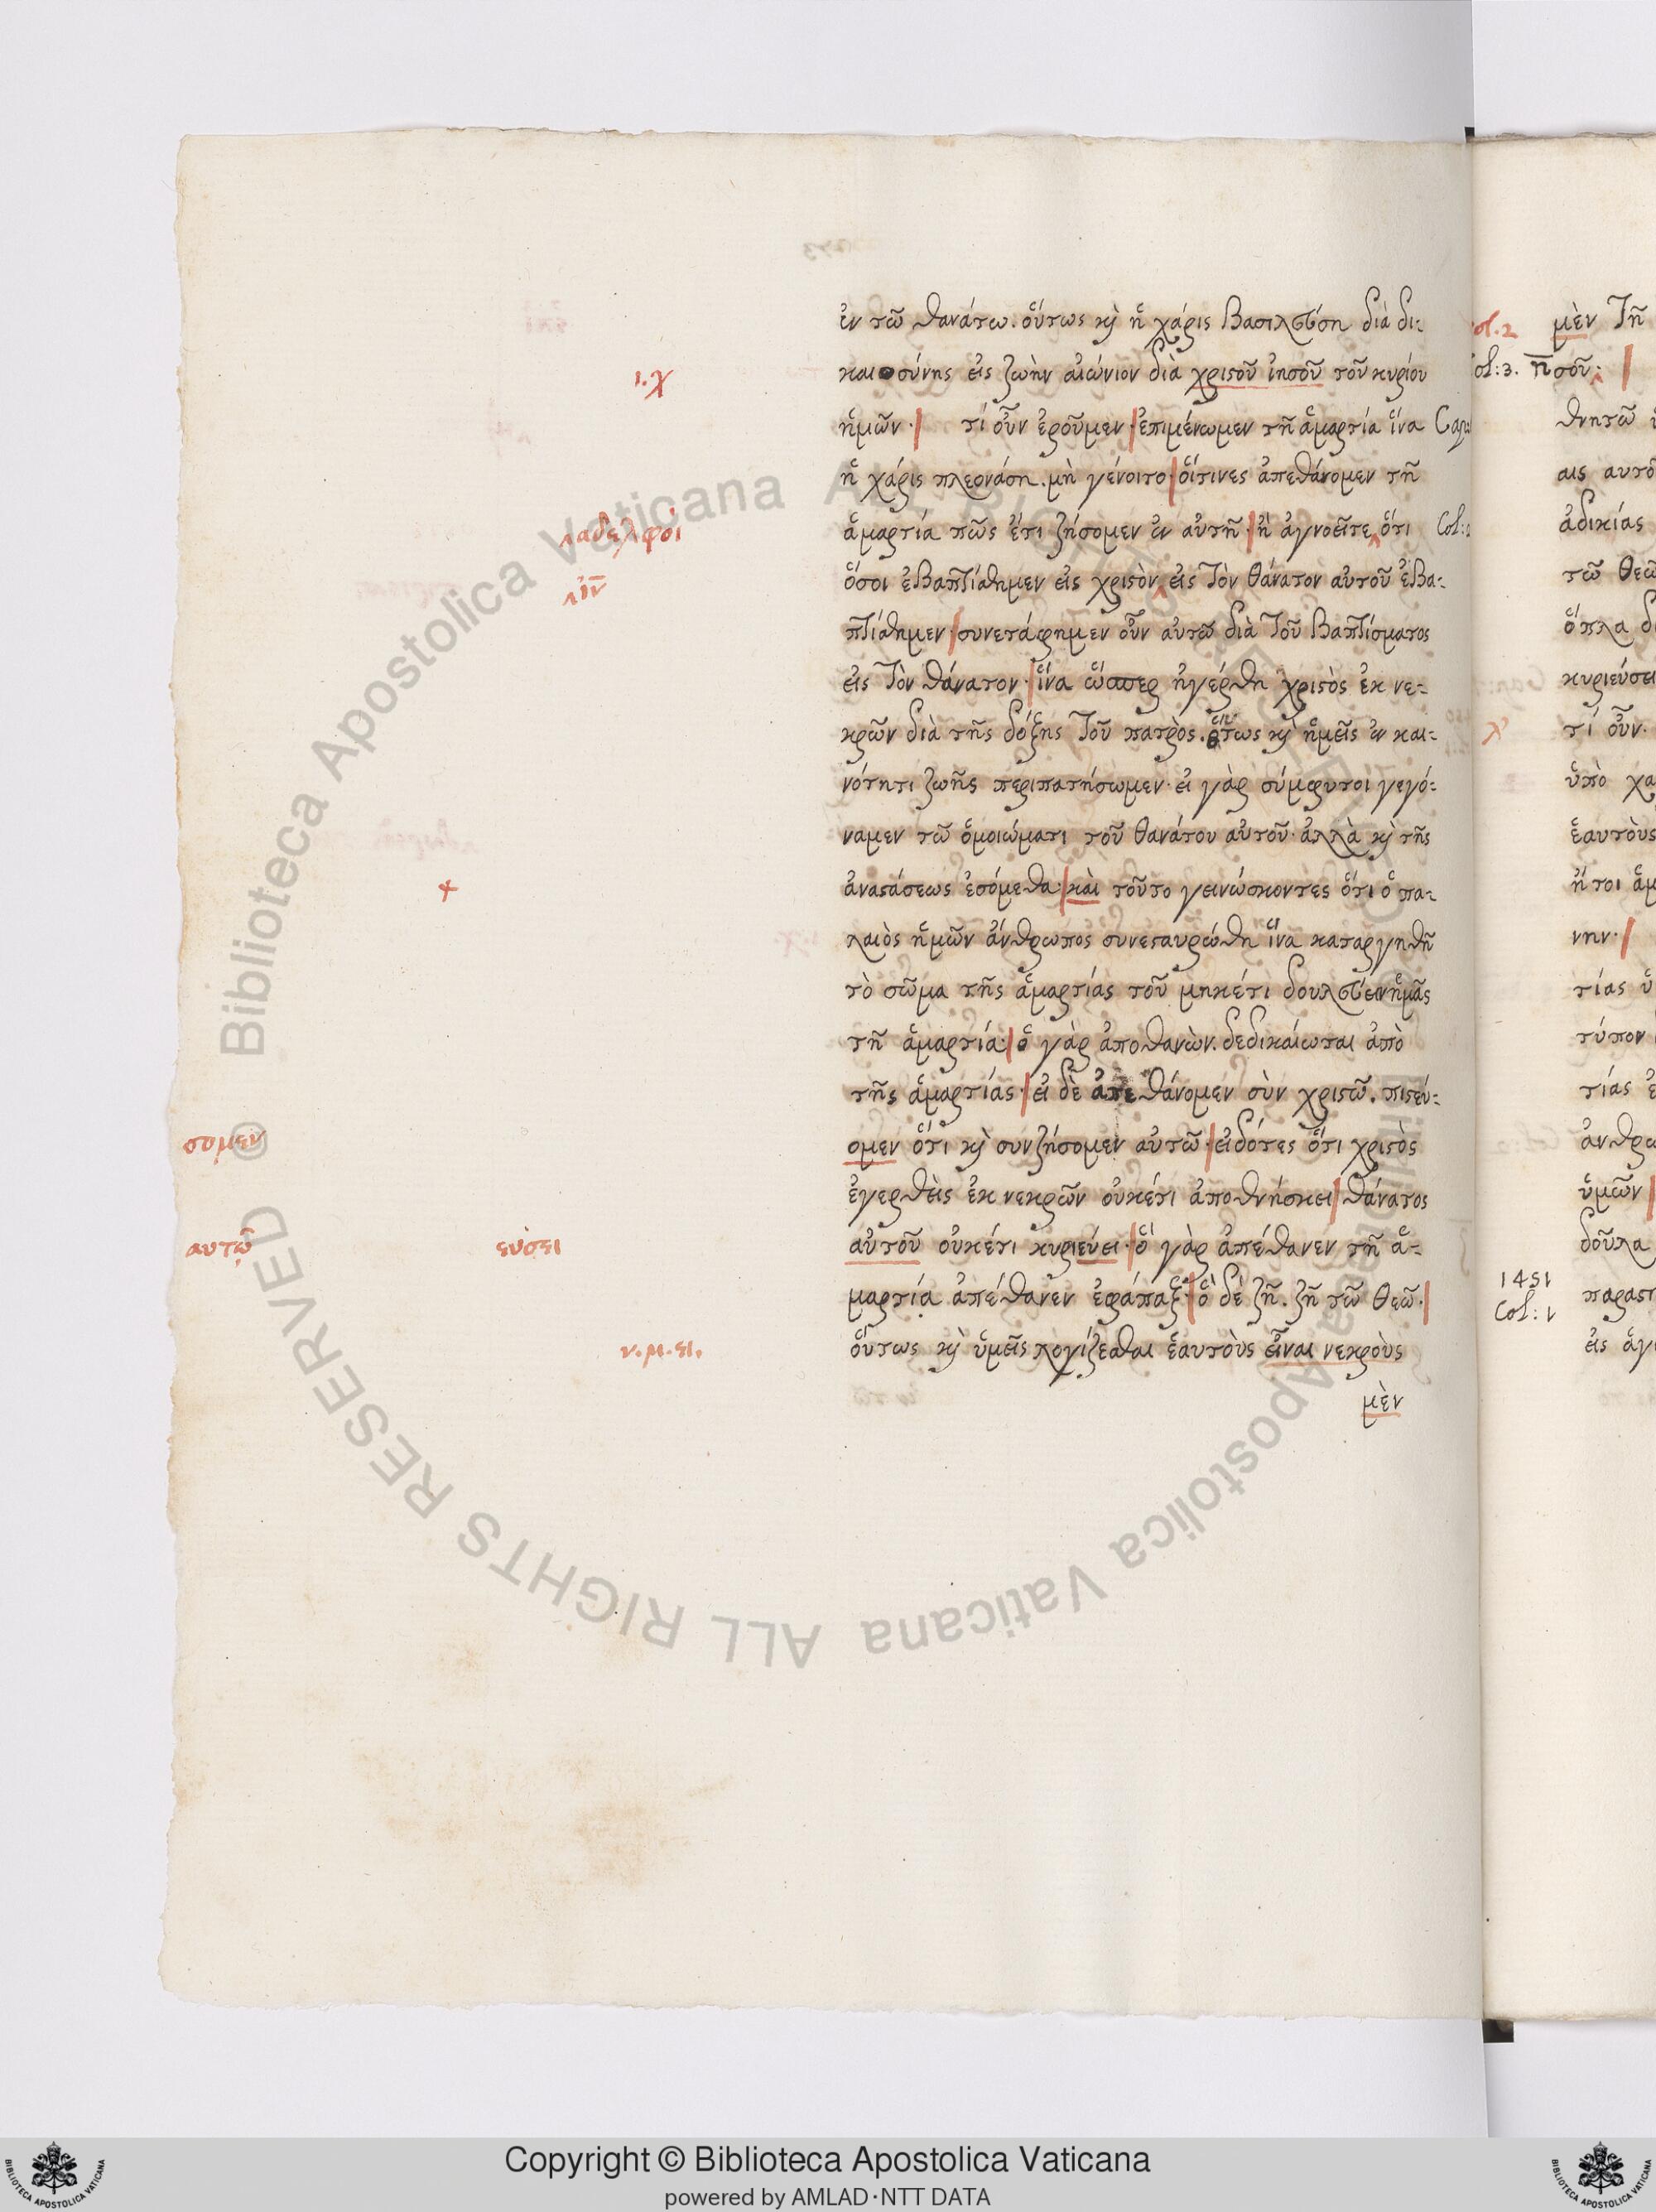 ἐν τῶ θανάτω. οὕτως κỳ ἡ χάρις βασιλεύση διὰ δι-
ι.χ
καιοσύνης εἰς ζωὴν αἰώνιον διὰ χριστοῦ ἰησοῦ τοῦ κυρίου
ἡμῶν· | τί οὖν ἐροῦμεν· | ἐπιμένωμεν τῆ ἁμαρτία ἵνα
ἡ χάρις πλεονάση. μὴ γένοιτο· | οἵτινες ἀπεθάνομεν τῆ
^ αδελφοὶ
ἁμαρτία πῶς ἔτι ζήσομεν ἐν αὐτῆ· | ἢ ἀγνοεῖτε ^ ὅτι
^ ἰν̅
ὅσοι ἐβαπτίσθημεν εἰς χριστὸν ^ εἰς τὸν θάνατον αὐτοῦ ἐβα-
πτίσθημεν· | συνετάφημεν οὖν αὐτῶ διὰ τοῦ βαπτίσματος
εἰς τὸν θάνατον· | ἵνα ὥσπερ ἠγέρθη χριστὸς ἐκ νε-
κρῶν διὰ τῆς δόξης τοῦ πατρὸς. οὕτως κỳ ἡμεῖς ἐν και-
νότητι ζωῆς περιπατήσωμεν· εἰ γὰρ σύμφυτοι γεγό-
ναμεν τῶ ὁμοιώματι τοῦ θανάτου αὐτοῦ· ἀλλὰ κỳ τῆς
+
ἀναστάσεως ἐσόμεθα· | καὶ τοῦτο γεινώσκοντες ὅτι ὁ πα-
λαιὸς ἡμῶν ἄνθρωπος συνεσταυρώθη ἵνα καταργηθῆ
τὸ σῶμα τῆς ἁμαρτίας τοῦ μηκέτι δουλεύειν ἡμᾶς
τῆ ἁμαρτία· | ὁ γὰρ ἀποθανὼν. δεδικαίωται ἀπὸ
τῆς ἁμαρτίας· | εἰ δὲ ἀπεθάνομεν σὺν χριστῶ. πιστεύ-
σομεν
ομεν ὅτι κỳ συνζήσομεν αὐτῶ· | εἰδότες ὅτι χριστὸς
ἐγερθεὶς ἐκ νεκρῶν οὐκέτι ἀποθνήσκει | θάνατος
αυτῶ ευσει
αὐτοῦ οὐκέτι κυριεύει· | ὃ γὰρ ἀπέθανεν τῆ ἁ-
μαρτία ἀπέθανεν ἐφάπαξ· | ὃ δὲ ζῆ. ζῆ τῶ θεῶ· |
ν.μ.ει.
οὕτως κỳ ὑμεῖς λογίζεσθαι ἑαυτοὺς εἶναι νεκροὺς
μὲν
μὲν τῆ
ol:3.
σοῦ· ^ |
θνητῶ
αις αυτο
ἀδικίας
τῶ θεῶ
ὅπλα δι
κυριεύσει
τί οὖν·
ὑπὸ χα
ἑαυτοὺς
ἤτοι ἁμ
νην· |
τίας ὑ
τύπον
τίας ἐ
ἀνθρω
ὑμῶν |
δοῦλα
1451
Col: 1
παραστ
εἰς ἁγι
© Biblioteca Apostolica Vaticana ALL RIGHTS RESERVED
Copyright © Biblioteca Apostolica Vaticana
powered by AMLAD·NTT DATA
BIBLIOTECA APOSTOLICA VATICANA
BIBLIOTECA APOSTOLICA VATICANA